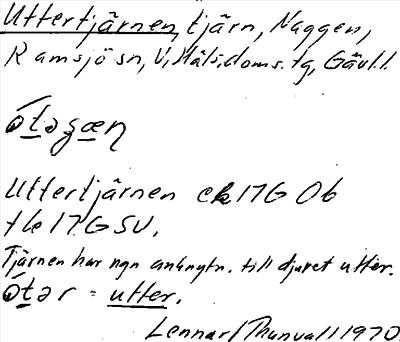 Uttertjärnen, tjärn, Naggen,
Ramsjö sn, V. Häls. doms. tg, Gävl. l.
Uttertjärnen ek 17G Ob
tk 17G SV.
Tjärnen har ngn anknytn. till djuret utter.
ó̱tər = utter.
Lennart 1970.